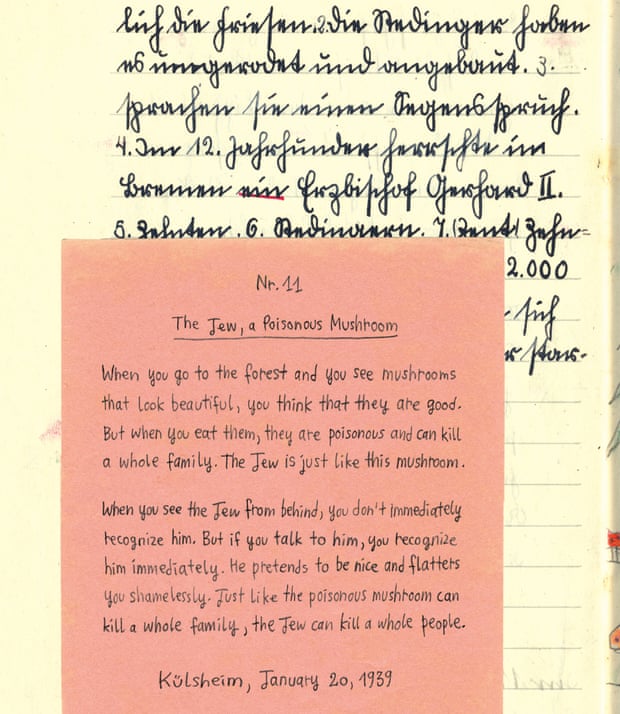 lich die Friesen. 2. Die Stedinger haben
es und angebaut. 3.
sprachen sie einen Segensspruch.
4. Im 12. Jahrhunder herrschte im
Bremen ein Erzbischof Gerhard II.
5. Zehnten. 6. Stedingern. 7. Zehn=
2.000
sich
star-
Nr. 11
The Jew, a Poisonous Mushroom
When you go to the forest and you see mushrooms
that look beautiful, you think that they are good.
But when you eat them, they are poisonous and can kill
a whole family. The Jew is just like this mushroom.
When you see the Jew from behind, you don't immediately
recognize him. But if you talk to him, you recognize
him immediately. He pretends to be nice and flatters
you shamelessly. Just like the poisonous mushroom can
kill a whole family, the Jew can kill a whole people.
Külsheim, January 20, 1939